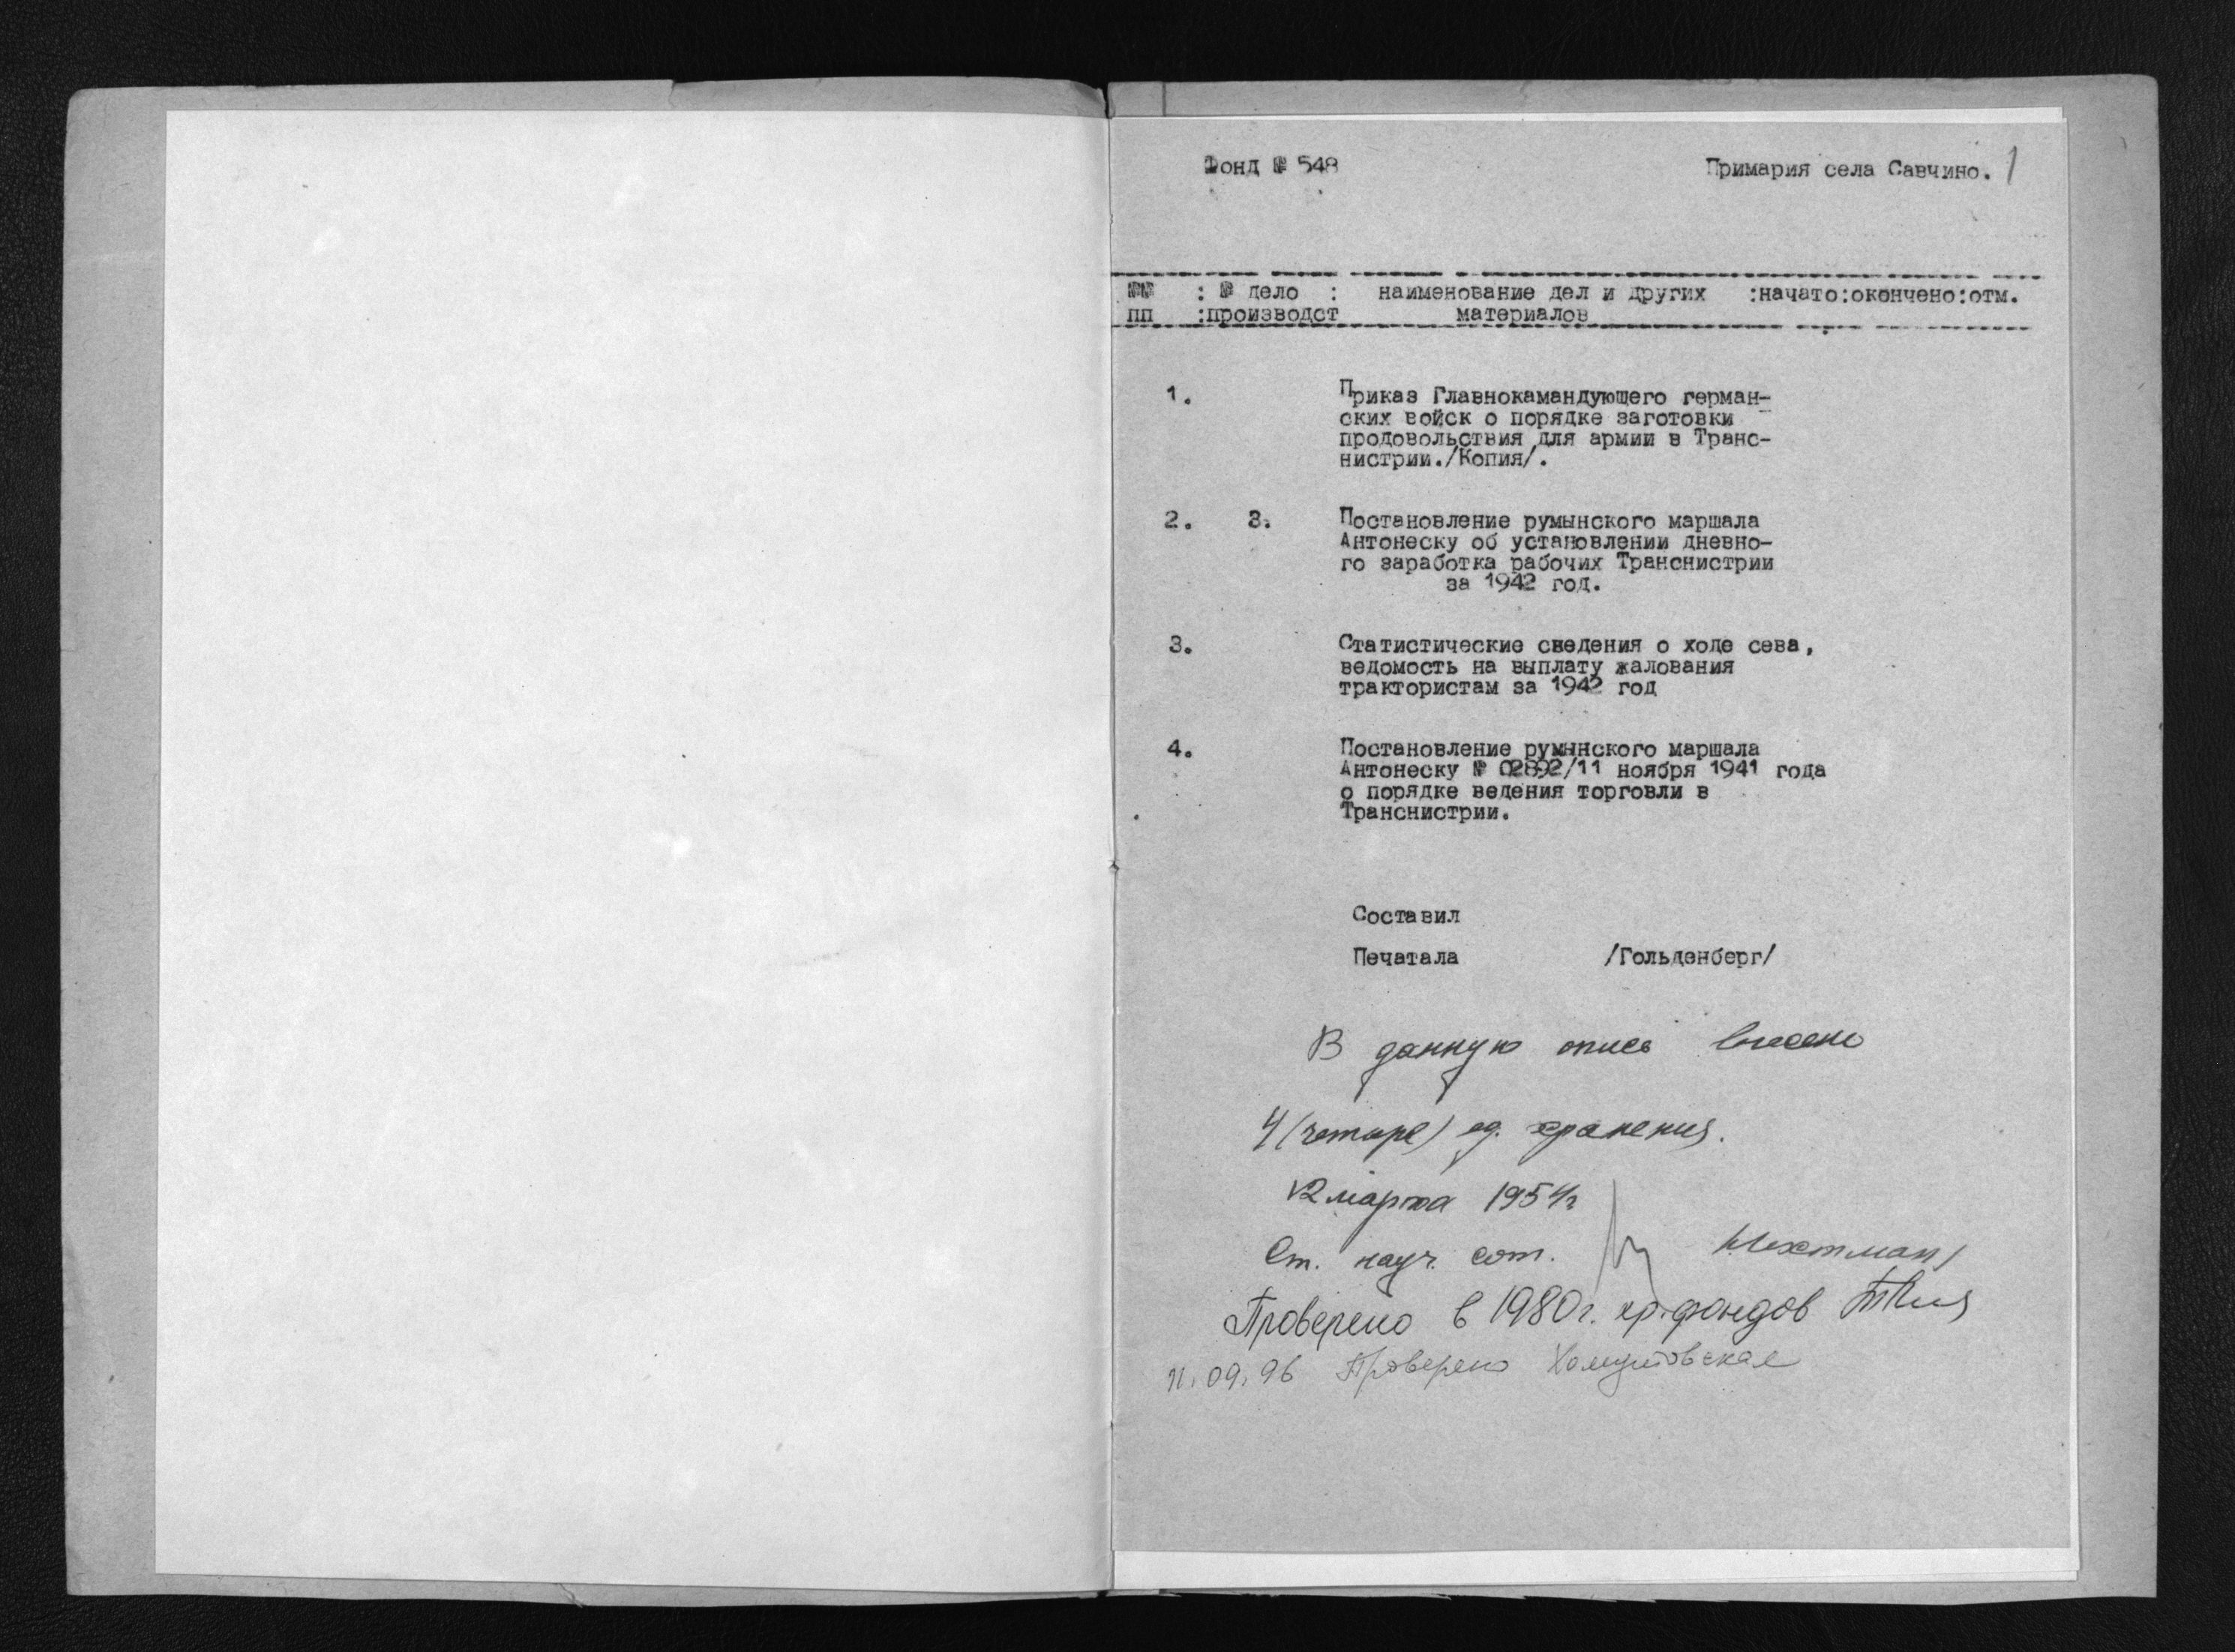 Фонд № 548
Примария села Савчино. 1
№№ : № дело : наименование дел и других :начато:окончено:отм.
пп :производст материалов
1. Приказ Главнокамандующего герман-
ских войск о порядке заготовки
продовольствия для армии в Транс-
нистрии./Копия/.
2. 3. Постановление румынского маршала
Антонеску об установлении дневно-
го заработка рабочих Транснистрии
за 1942 год.
3. Статистические сведения о ходе сева,
ведомость на выплату жалования
трактористам за 1942 год
4. Постановление румынского маршала
Антонеску № 02892/11 ноября 1941 года
о порядке ведения торговли в
Транснистрии.
Составил
Печатала /Гольденберг/
В данную опись внесено
4 (четыре) ед. хранения.
12 марта 1954г
Ст. науч. сот.
Проверено в 1980г. хр. фондов
11.09.96 Проверено Хомутовская